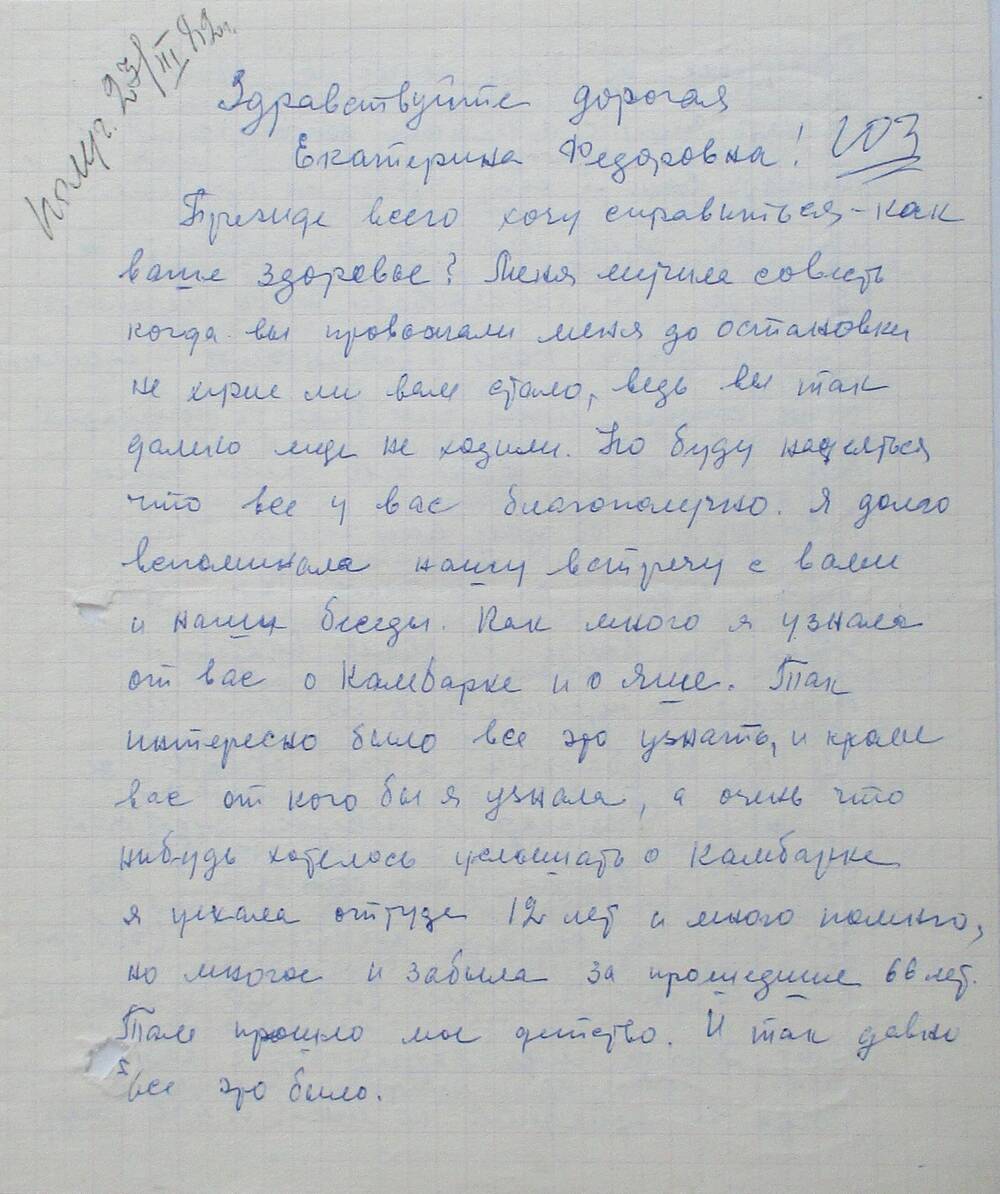 получ. 23/III 82г.
Здравствуйте дорогая
Екатерина Федоровна! 103
Прежде всего хочу справиться - как
ваше здоровье? Меня мучила совесть
когда вы провожали меня до остановки
не хуже ли вам стало, ведь вы так
далеко еще не ходили. Но буду надеяться
что все у вас благополучно. Я долго
вспоминала нашу встречу с вами
и наши беседы. Как много я узнала
от вас о Камбарке и о Яше. Так
интересно было все это узнать, и кроме
вас от кого бы я узнала, а очень что
нибудь хотелось услышать о Камбарке
я уехала оттуда 12 лет и много помню,
но многое и забыла за прошедшие 66 лет.
Там прошло мое детство. И так давно
все это было.